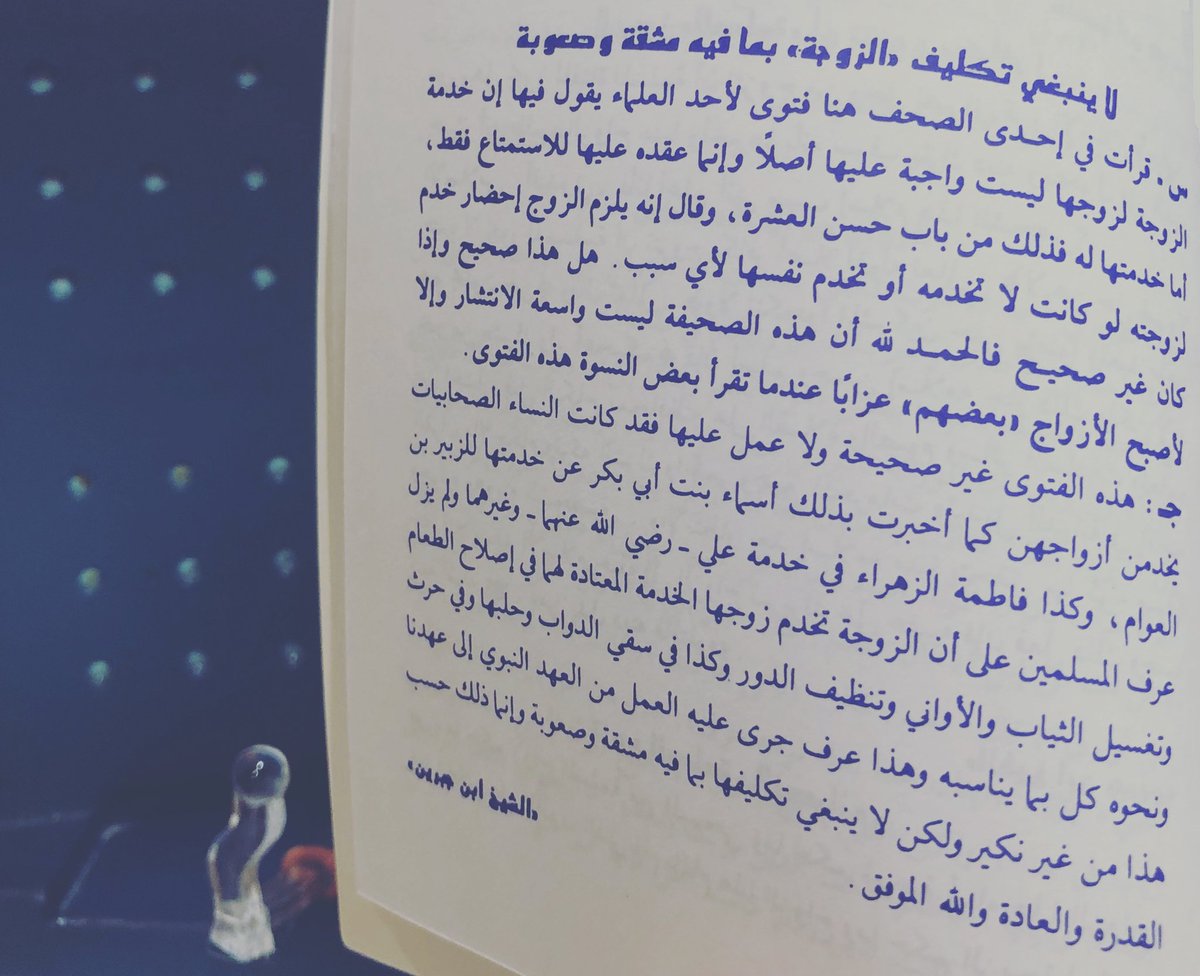 لا ينبغي تكليف «الزوجة» بما فيه مشقة وصعوبة
س. قرأت في إحدى الصحف هنا فتوى لأحد العلماء يقول فيها إن خدمة
الزوجة لزوجها ليست واجبة عليها أصلًا وإنما عقده عليها للاستمتاع فقط،
أما خدمتها له فذلك من باب حسن العشرة، وقال إنه يلزم الزوج إحضار خدم
لزوجته لو كانت لا تخدمه أو تخدم نفسها لأي سبب. هل هذا صحيح وإذا
كان غير صحيح فالحمد لله أن هذه الصحيفة ليست واسعة الانتشار وإلا
لأصبح الأزواج «بعضهم» عزابًا عندما تقرأ بعض النسوة هذه الفتوى.
جـ: هذه الفتوى غير صحيحة ولا عمل عليها فقد كانت النساء الصحابيات
يخدمن أزواجهن كما أخبرت بذلك أسماء بنت أبي بكر عن خدمتها للزبير بن
العوام، وكذا فاطمة الزهراء في خدمة علي ـ رضي الله عنهما ـ وغيرهما ولم يزل
عرف المسلمين على أن الزوجة تخدم زوجها الخدمة المعتادة لهما في إصلاح الطعام
وتغسيل الثياب والأواني وتنظيف الدور وكذا في سقي الدواب وحلبها وفي حرث
ونحوه كل بما يناسبه وهذا عرف جرى عليه العمل من العهد النبوي إلى عهدنا
هذا من غير نكير ولكن لا ينبغي تكليفها بما فيه مشقة وصعوبة وإنما ذلك حسب
القدرة والعادة والله الموفق.
«الشيخ ابن جبرين»